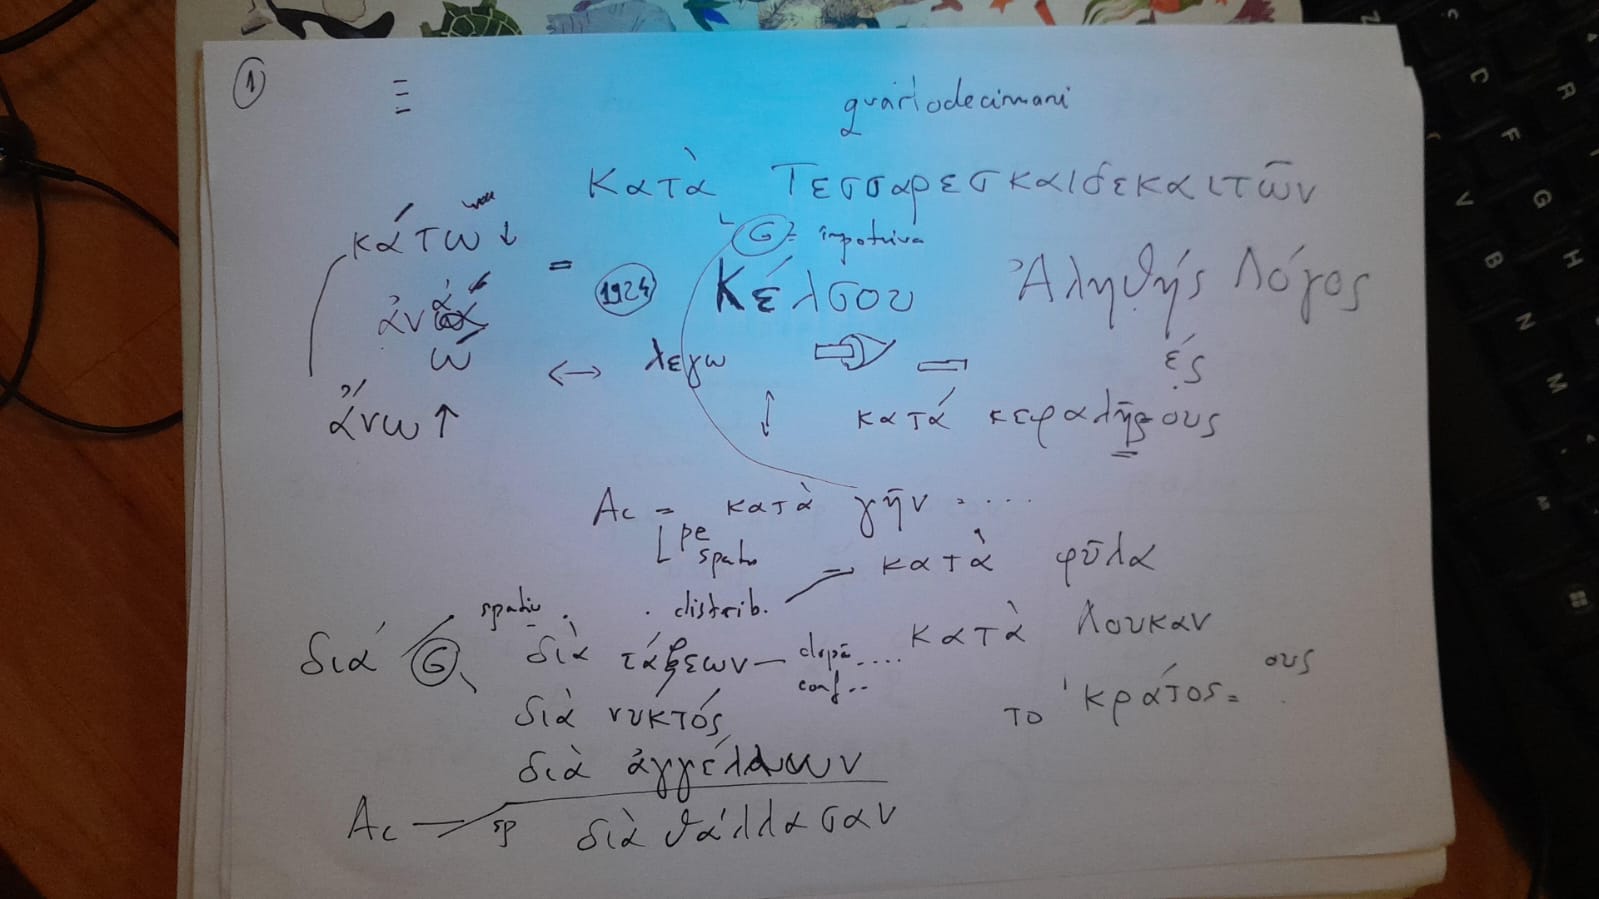 1
quartodecimani
Κατὰ Τεσσαρεσκαιδεκαιτῶν
G = împotriva
κάτω ↓
= 1924 Κέλσου Ἀληθής Λόγος
ἀνά
ώ
↔ λεγω
ές
ἄνω ↑
κατά κεφαλῆς ους
Ac = κατὰ γῆν = ....
pe
spațiu
κατὰ φῦλα
spațiu
. distrib.
κατὰ Λουκαν
διά G
διὰ τάξεων — după ....
conf ..
ους
διὰ νυκτός
το κράτος =
διὰ ἀγγέλων
Ac — sp διὰ θάλλασαν